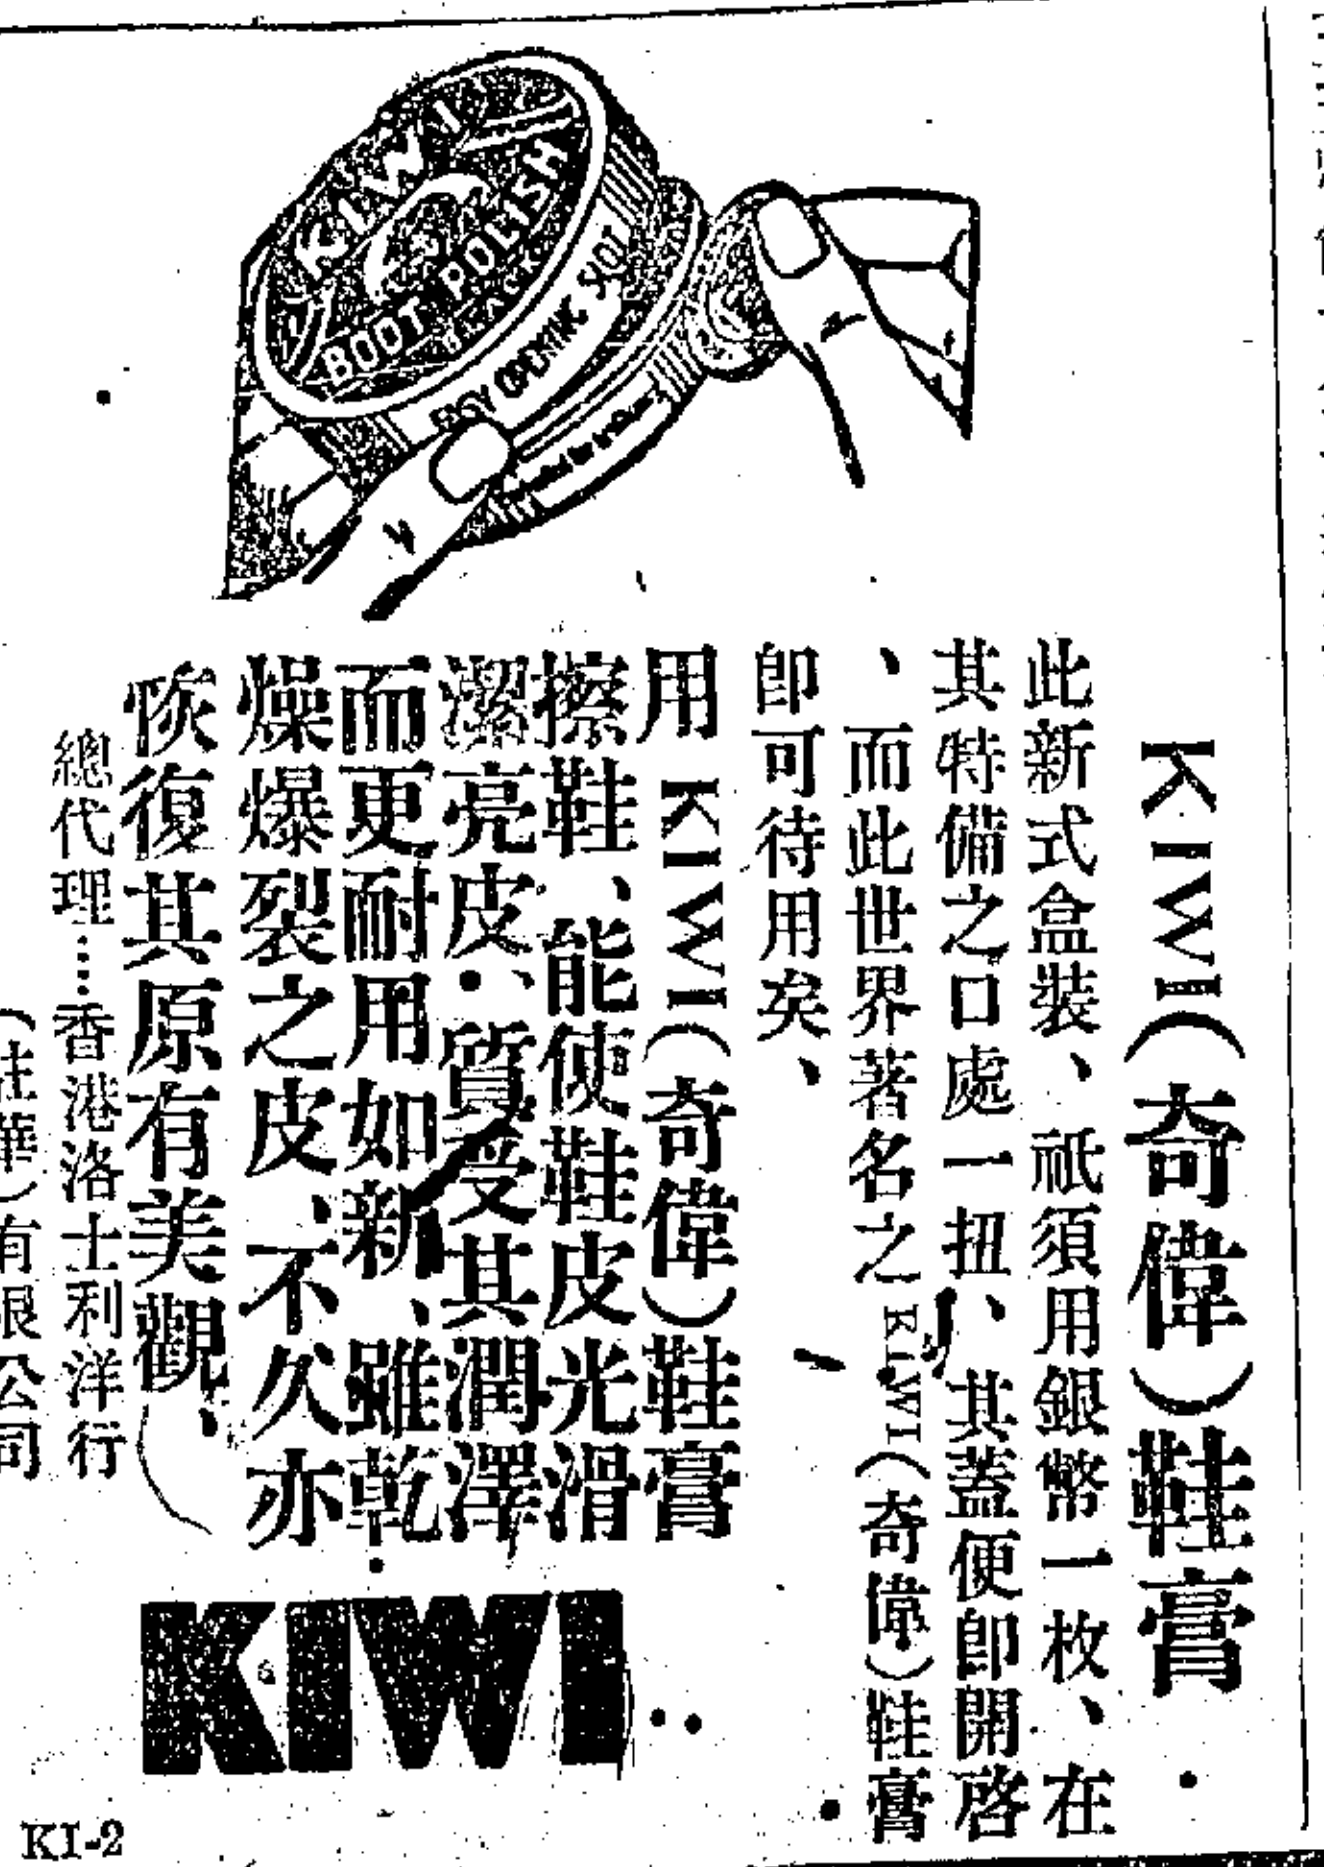 KIWI
BOOT POLISH
BLACK
EASY OPENING SLOT
KIWI(奇偉)鞋膏
此新式盒裝、祇須用銀幣一枚、在
其特備之口處一扭、其蓋便卽開啓
、而此世界著名之KIWI(奇偉)鞋膏
卽可待用矣、
用KIWI(奇偉)鞋膏
擦鞋、能使鞋皮光滑
潔亮皮、質受其潤澤
而更耐用如新、雖乾
燥爆裂之皮、不久亦
恢復其原有美觀、
總代理……香港洛士利洋行
(駐華)有限公司
KIWI
KI-2